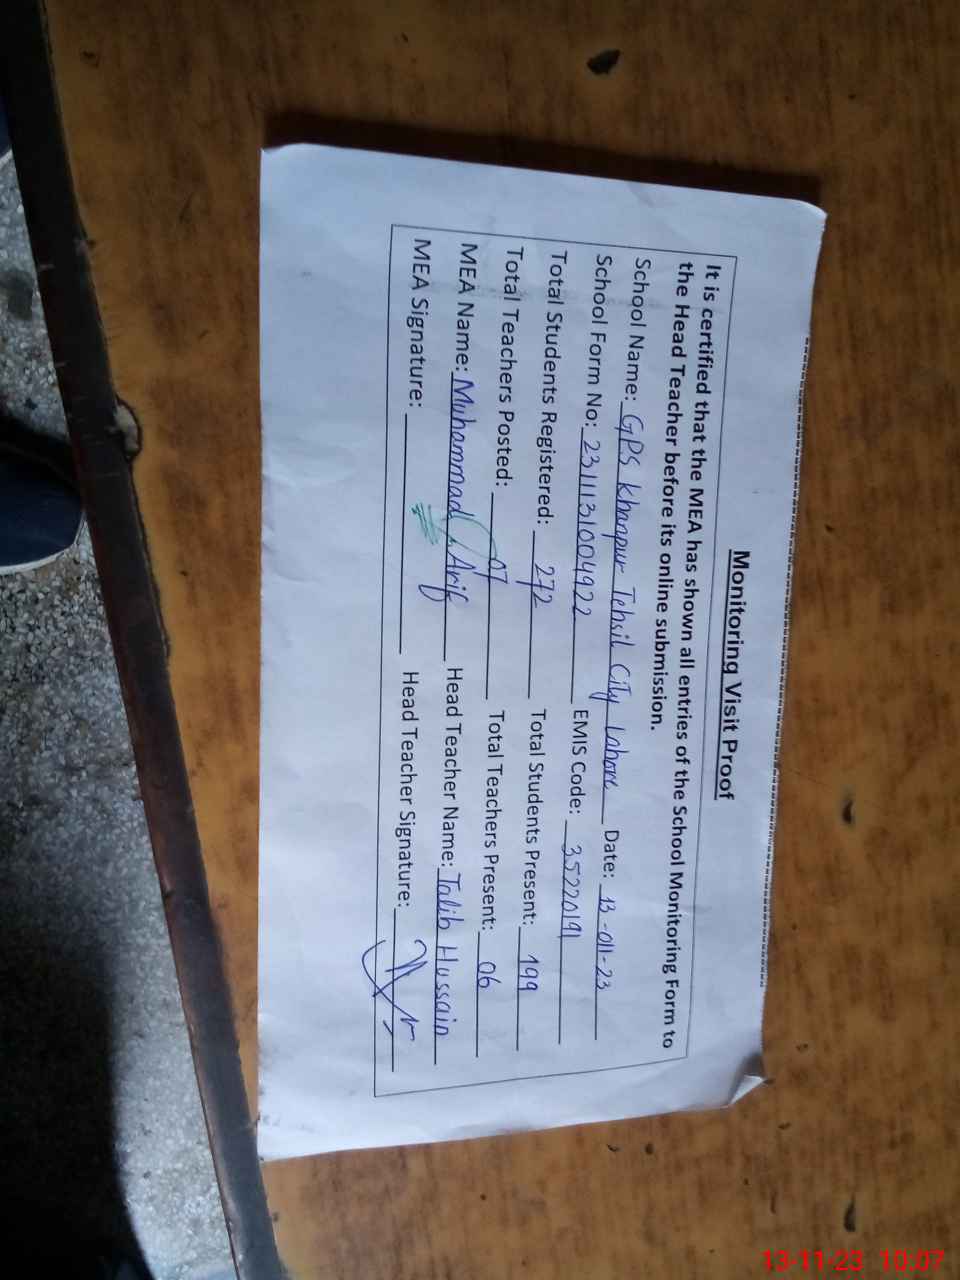 Monitoring Visit Proof
It is certified that the MEA has shown all entries of the School Monitoring Form to
the Head Teacher before its online submission.
School Name: GPS Khanpur Tehsil City Lahore Date: 13-011-23
School Form No: 2311131004922 EMIS Code: 35220191
Total Students Registered: 272 Total Students Present: 199
Total Teachers Posted: 07 Total Teachers Present: 06
MEA Name: Muhammad Arif Head Teacher Name: Talib Hussain
MEA Signature: Head Teacher Signature:
13-11-23 10:07